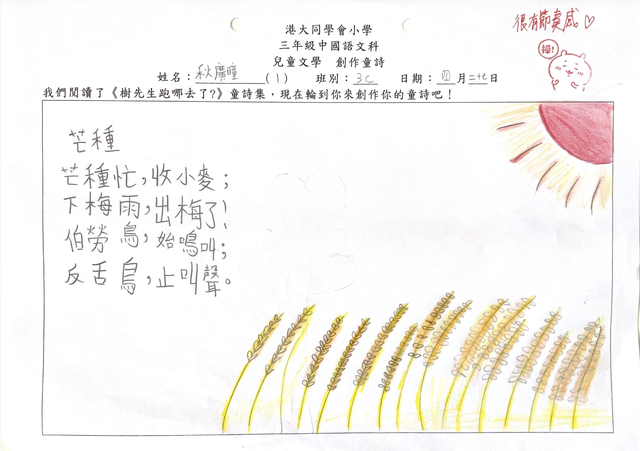 港大同學會小學
三年級中國語文科
兒童文學 創作童詩
很有節奏感。♡
棒!
姓名:秋廣瞳(1) 班別:3C 日期:四月二十七日
我們閱讀了《樹先生跑哪去了?》童詩集,現在輪到你來創作你的童詩吧!
芒種
芒種忙,收小麥;
下梅雨,出梅了!
伯勞鳥,始鳴叫;
反舌鳥,止叫聲。